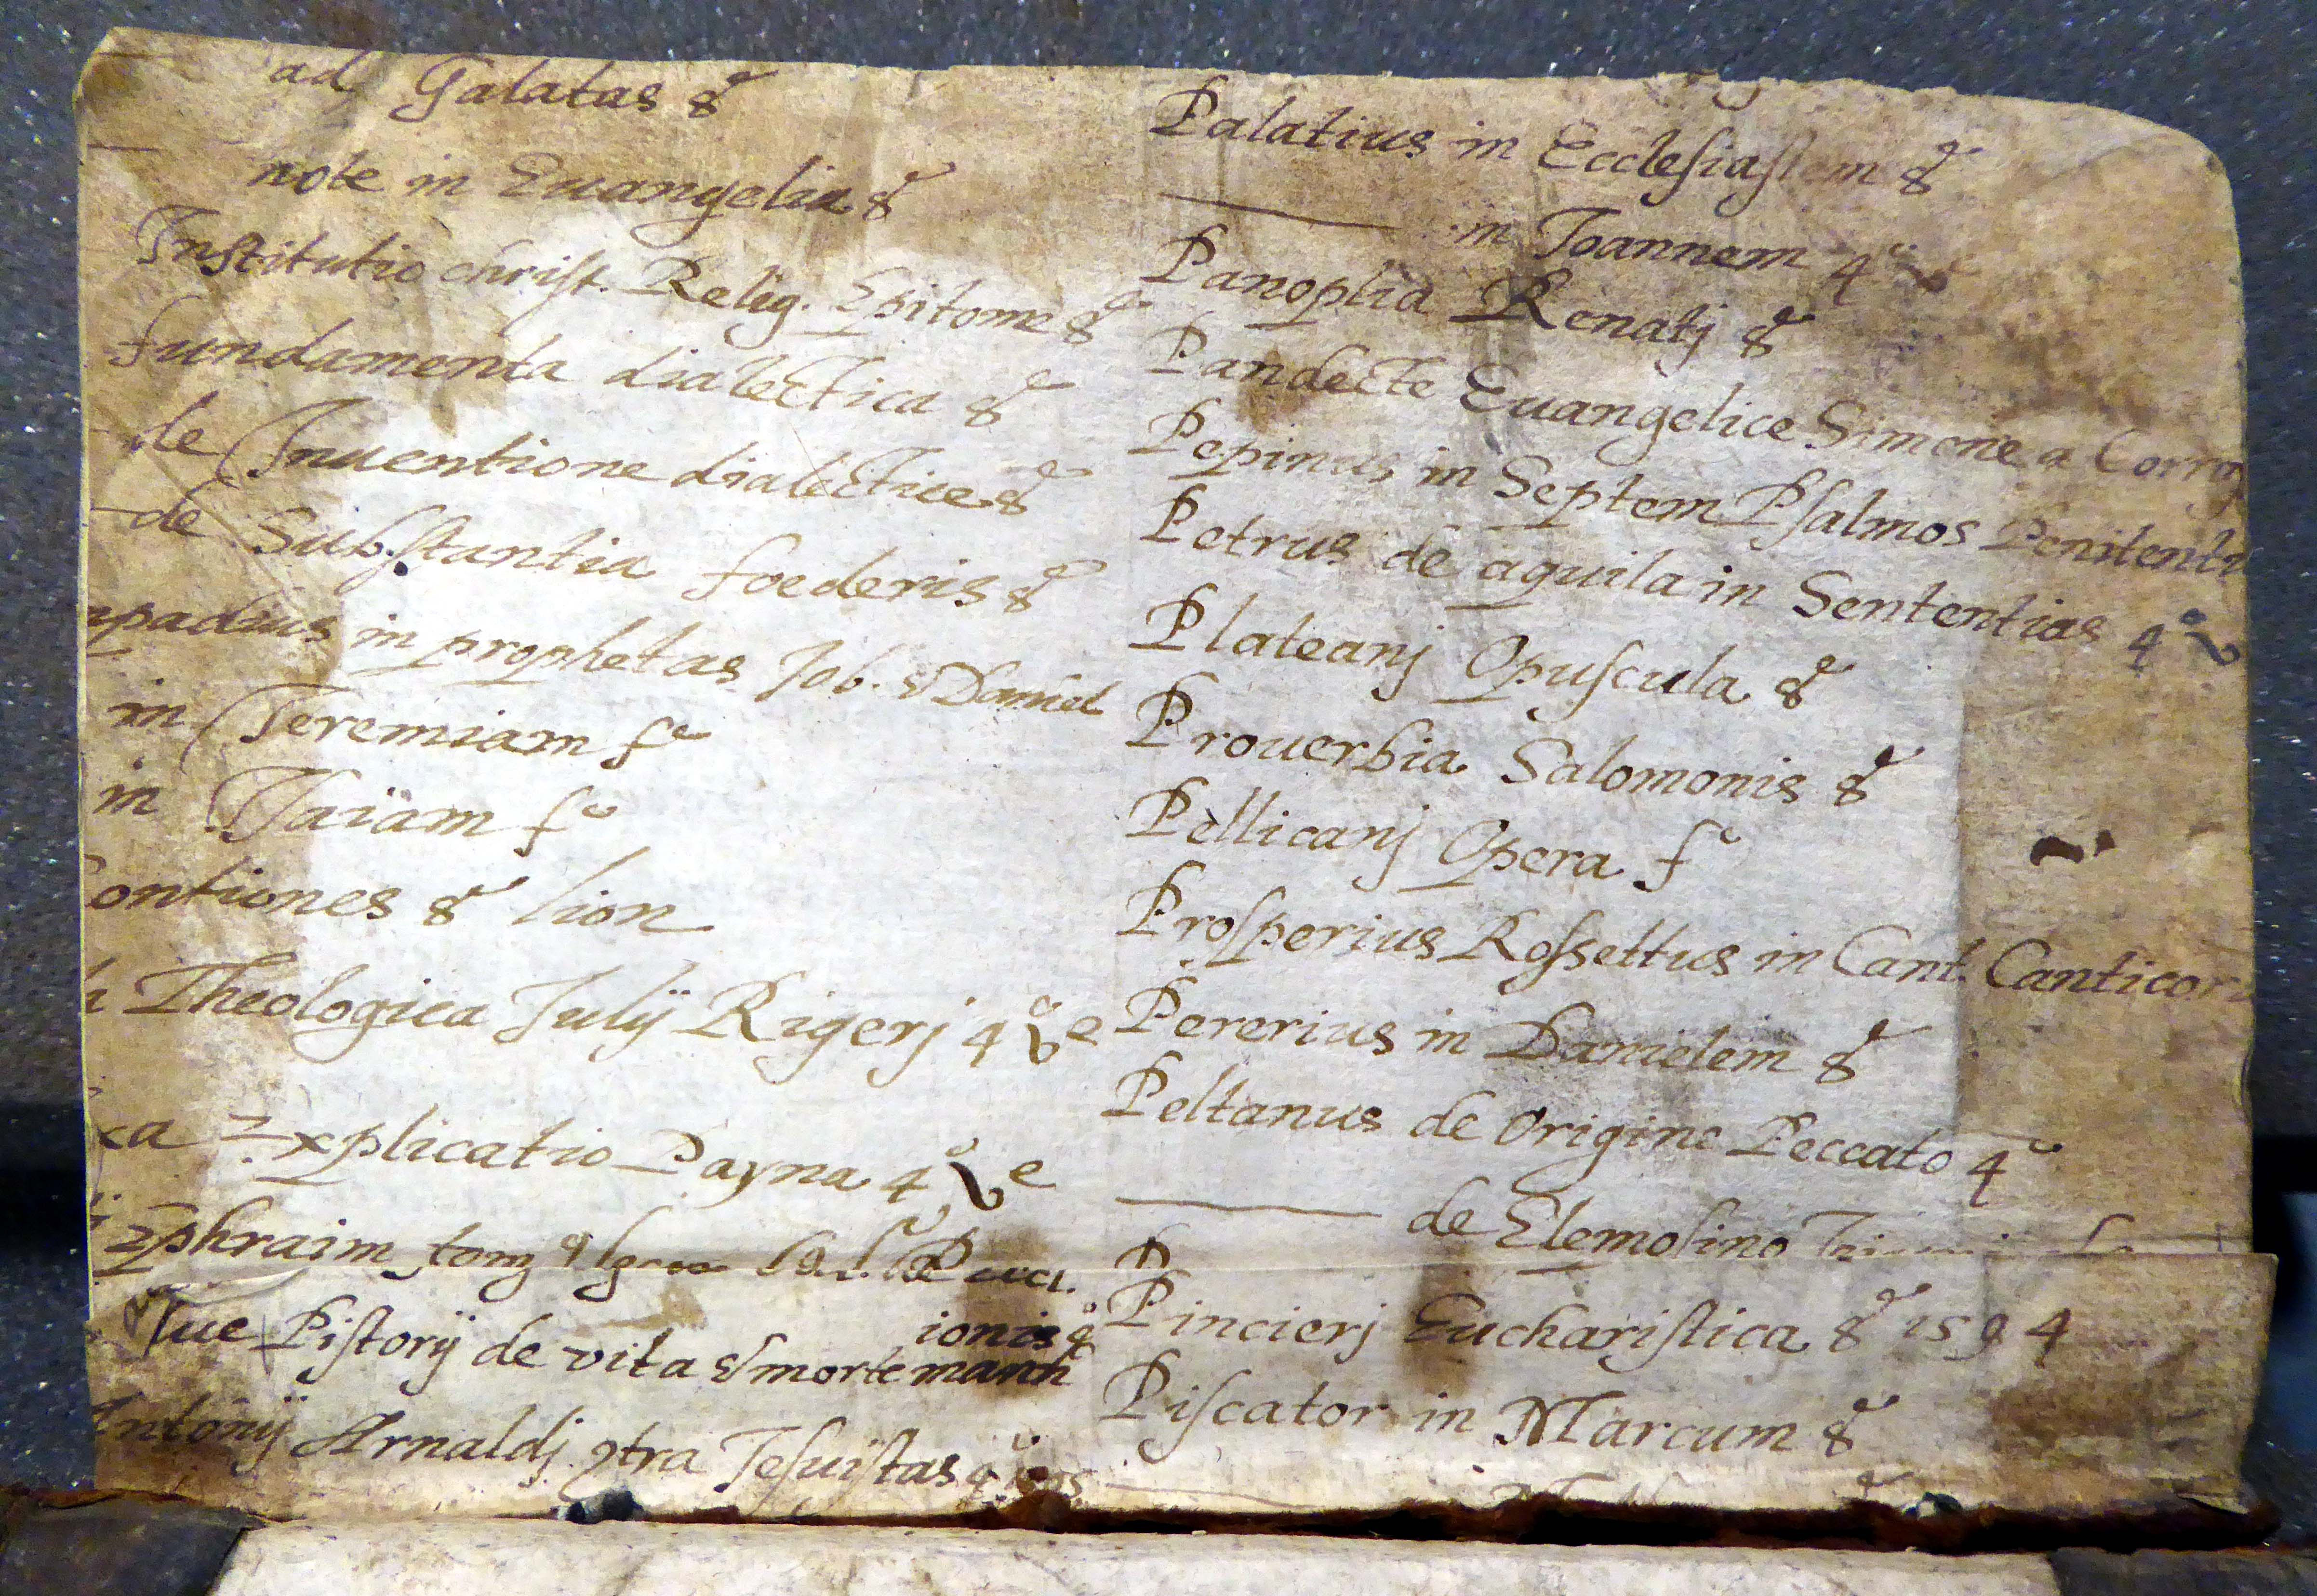 ad Galatas 8°
note in Euangelia 8°
Institutio christ. Relig. Epitome 8°
fundamenta dialectica 8°
de Inuentione dialectice 8°
de Substantia foederis 8°
mpadius in prophetas Job. & Daniel
in Jeremiam f°
in Isaiam f°
Contiones 8° lion
Theologica Julij Rigerj 4°
Explicatio Payna 4°
Ephraim tom
Pistorij de vita & morte
ionis 4°
Antonij Arnaldj 9tra Jesuistas 4°
Palatius in Ecclesiastem 8°
in Joannem 4°
Panoplia Renatj 8°
Pandecte Euangelice Simone a Corro
Pepinus in Septem Psalmos Penitenti
Petrus de aquila in Sententias 4°
Plateanj Opuscula 8°
Prouerbia Salomonis 8°
Pellicanj Opera f°
Prosperius Rossettus in Cant. Canticoru
Pererius in Danielem 8°
Peltanus de Origine Peccato 4°
de Elemosino
Pincierj Eucharistica 8° 1594
Piscator in Marcum 8°